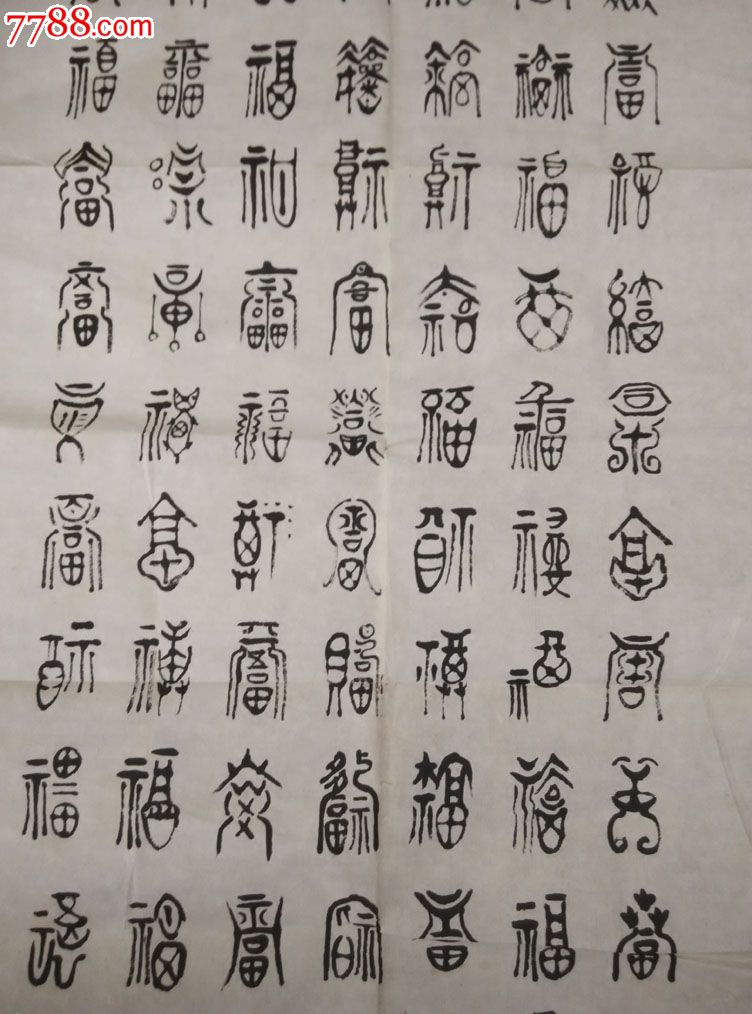 7788.com
福福福福福福福福
福福福福福福福福
福福福福福福福福
福福福福福福福福
福福福福福福福福
福福福福福福福福
福福福福福福福福